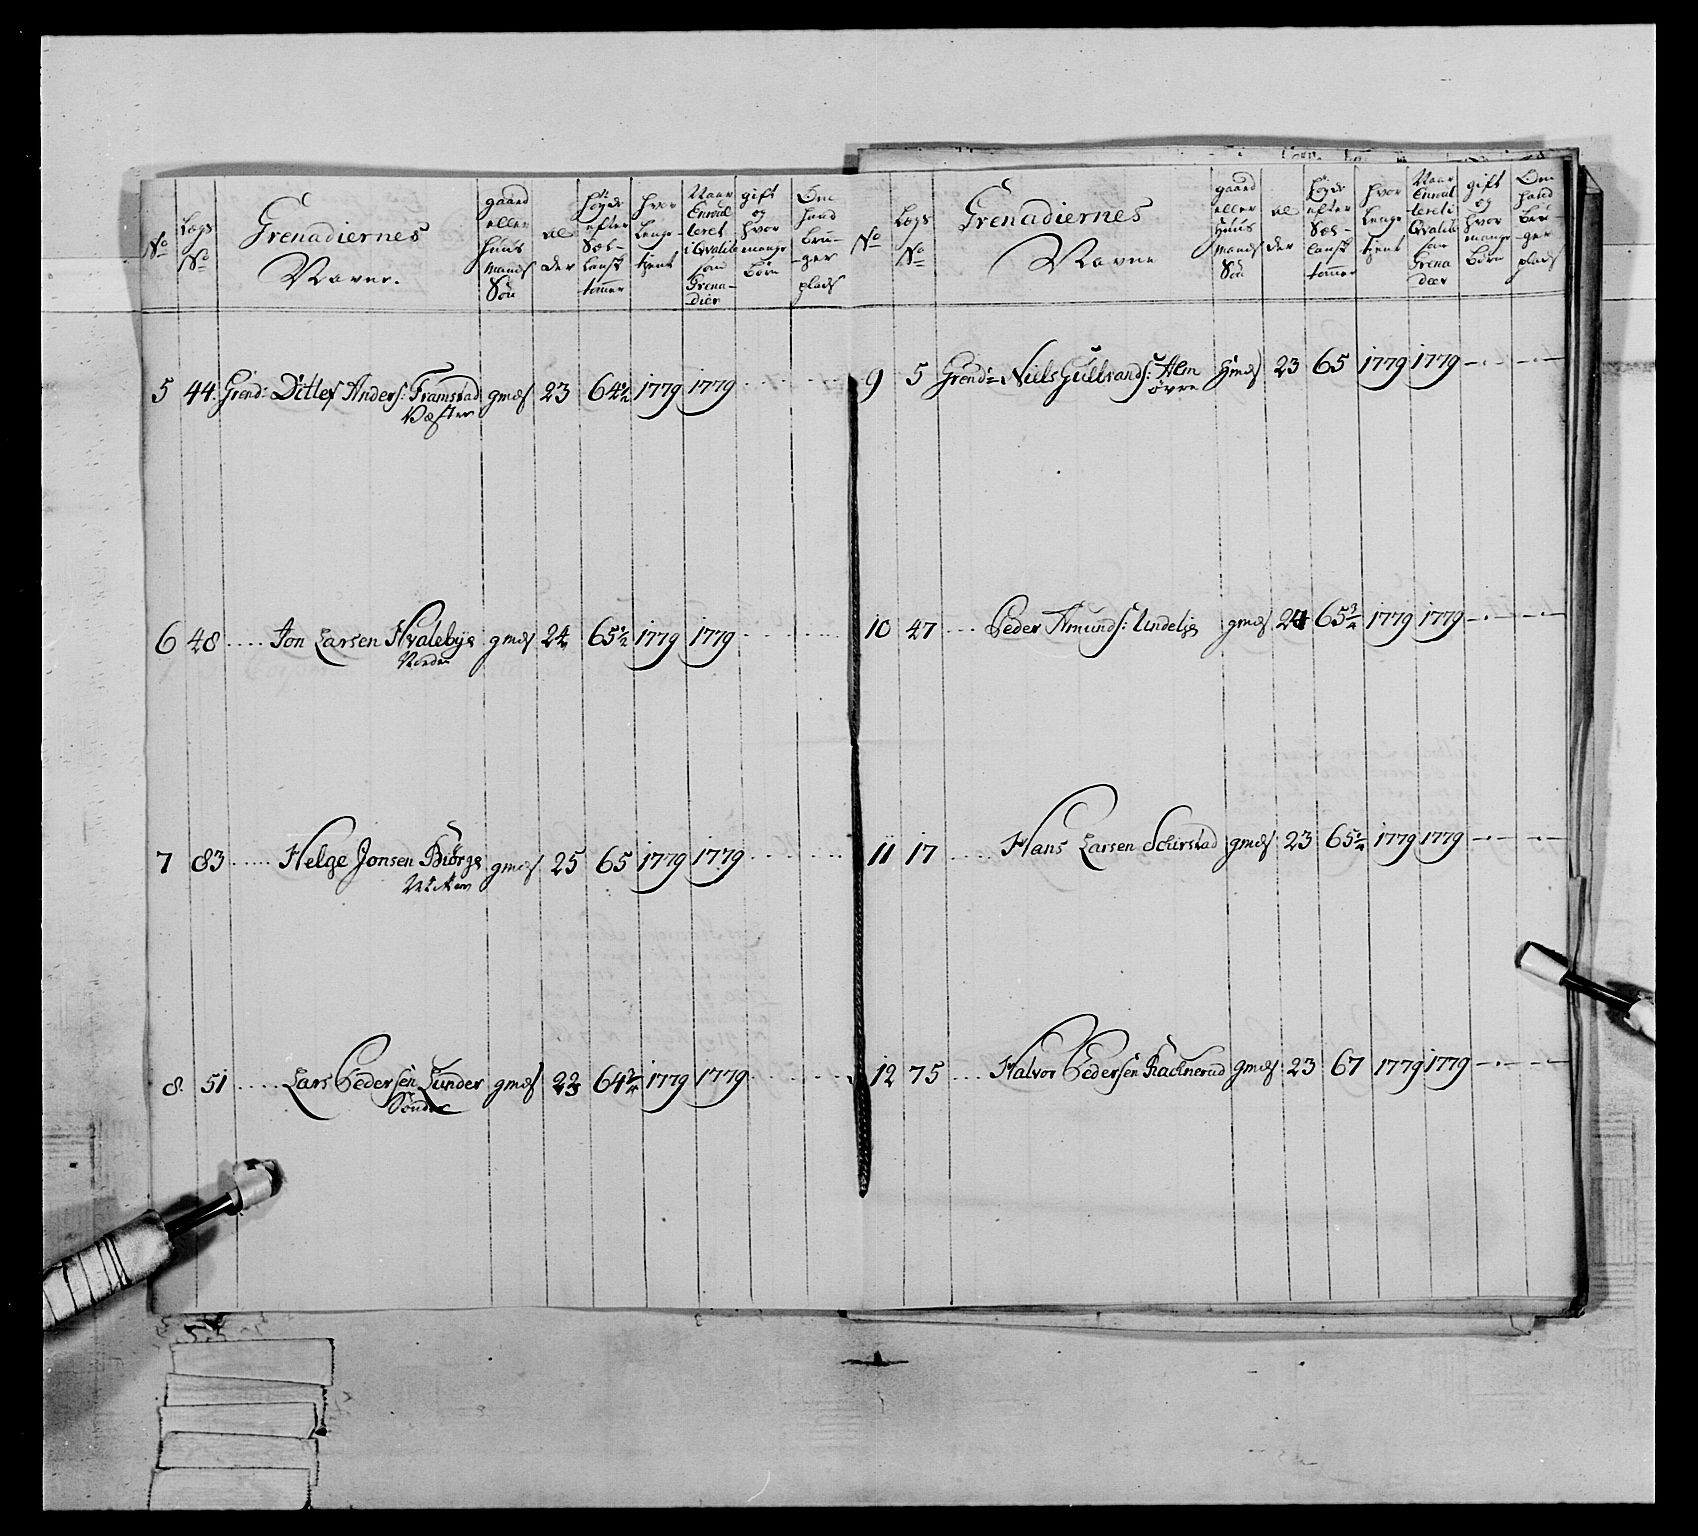 No
Lægs No
Grenadiernes Navne.
gaard eller Huusmands Søn
alder
Høyde efter Sælandsk tommer
hvor lenge tient
Naar Enrulleret i Qvalite som Grenadier
gift og hvor mange børn
Om hand bruger plads
5 44. Grend: Ditlef Anders: Framstad gmds 23 64½ 1779 1779
Væster
6 48 Jon Larsen Hvalebye gmds 24 65½ 1779 1779
Nordre
7 83 Helge Jonsen Biörge gmds 25 65 1779 1779
8. 51 Lars Pedersen Lunder gmds 23 64¾ 1779 1779
Söndre
No
Lægs No
Grenadiernes Navne
gaard eller Huusmands Søn
alder
Høyde efter Sælandsk tommer
hvor lenge tient
Naar Enrulleret i Qvalite som Grenadeer
gift og hvor mange børn
Om hand bruger plads
9 5 Grend: Niels Gulbrands: Alm Hmds 23 65 1779 1779
övre
10 47 Peder Amunds: Undelje gmds 24 65¾ 1779 1779
11 17 Hans Larsen Schirstad gmds 23 65¼ 1779 1779
12 75 Halvor Pedersen Rachnerud gmds 23 67 1779 1779